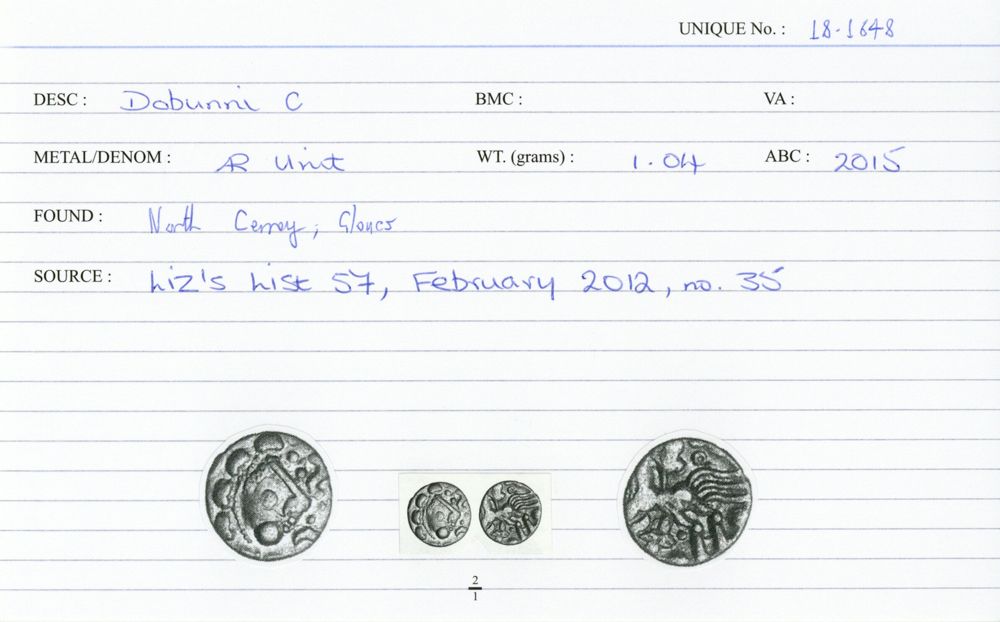 UNIQUE No. : 18-1648
DESC : Dobunni C BMC : VA :
METAL/DENOM : AR Unit WT. (grams) : 1.04 ABC : 2015
FOUND : North Cerney, Gloucs
SOURCE : Liz's List 57, February 2012, no. 35
2
1